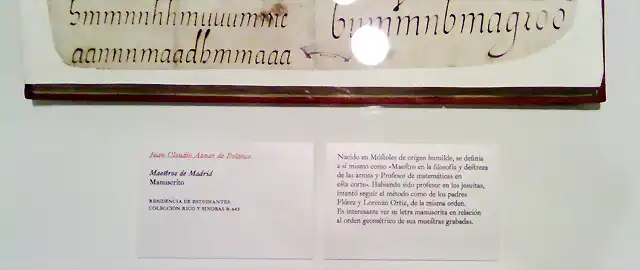 aannnmaadbmmaaa
Juan Claudio Aznar de Polanco
Maestros de Madrid
Manuscrito
RESIDENCIA DE ESTUDIANTES
COLECCIÓN RICO Y SINOBAS R-643
Nacido en Móstoles de origen humilde, se definía
a sí mismo como «Maestro en la filosofía y destreza
de las armas y Profesor de matemáticas en
esta corte». Habiendo sido profesor en los jesuitas,
intentó seguir el método como de los padres
Flórez y Lorenzo Ortiz, de la misma orden.
Es interesante ver su letra manuscrita en relación
al orden geométrico de sus muestras grabadas.